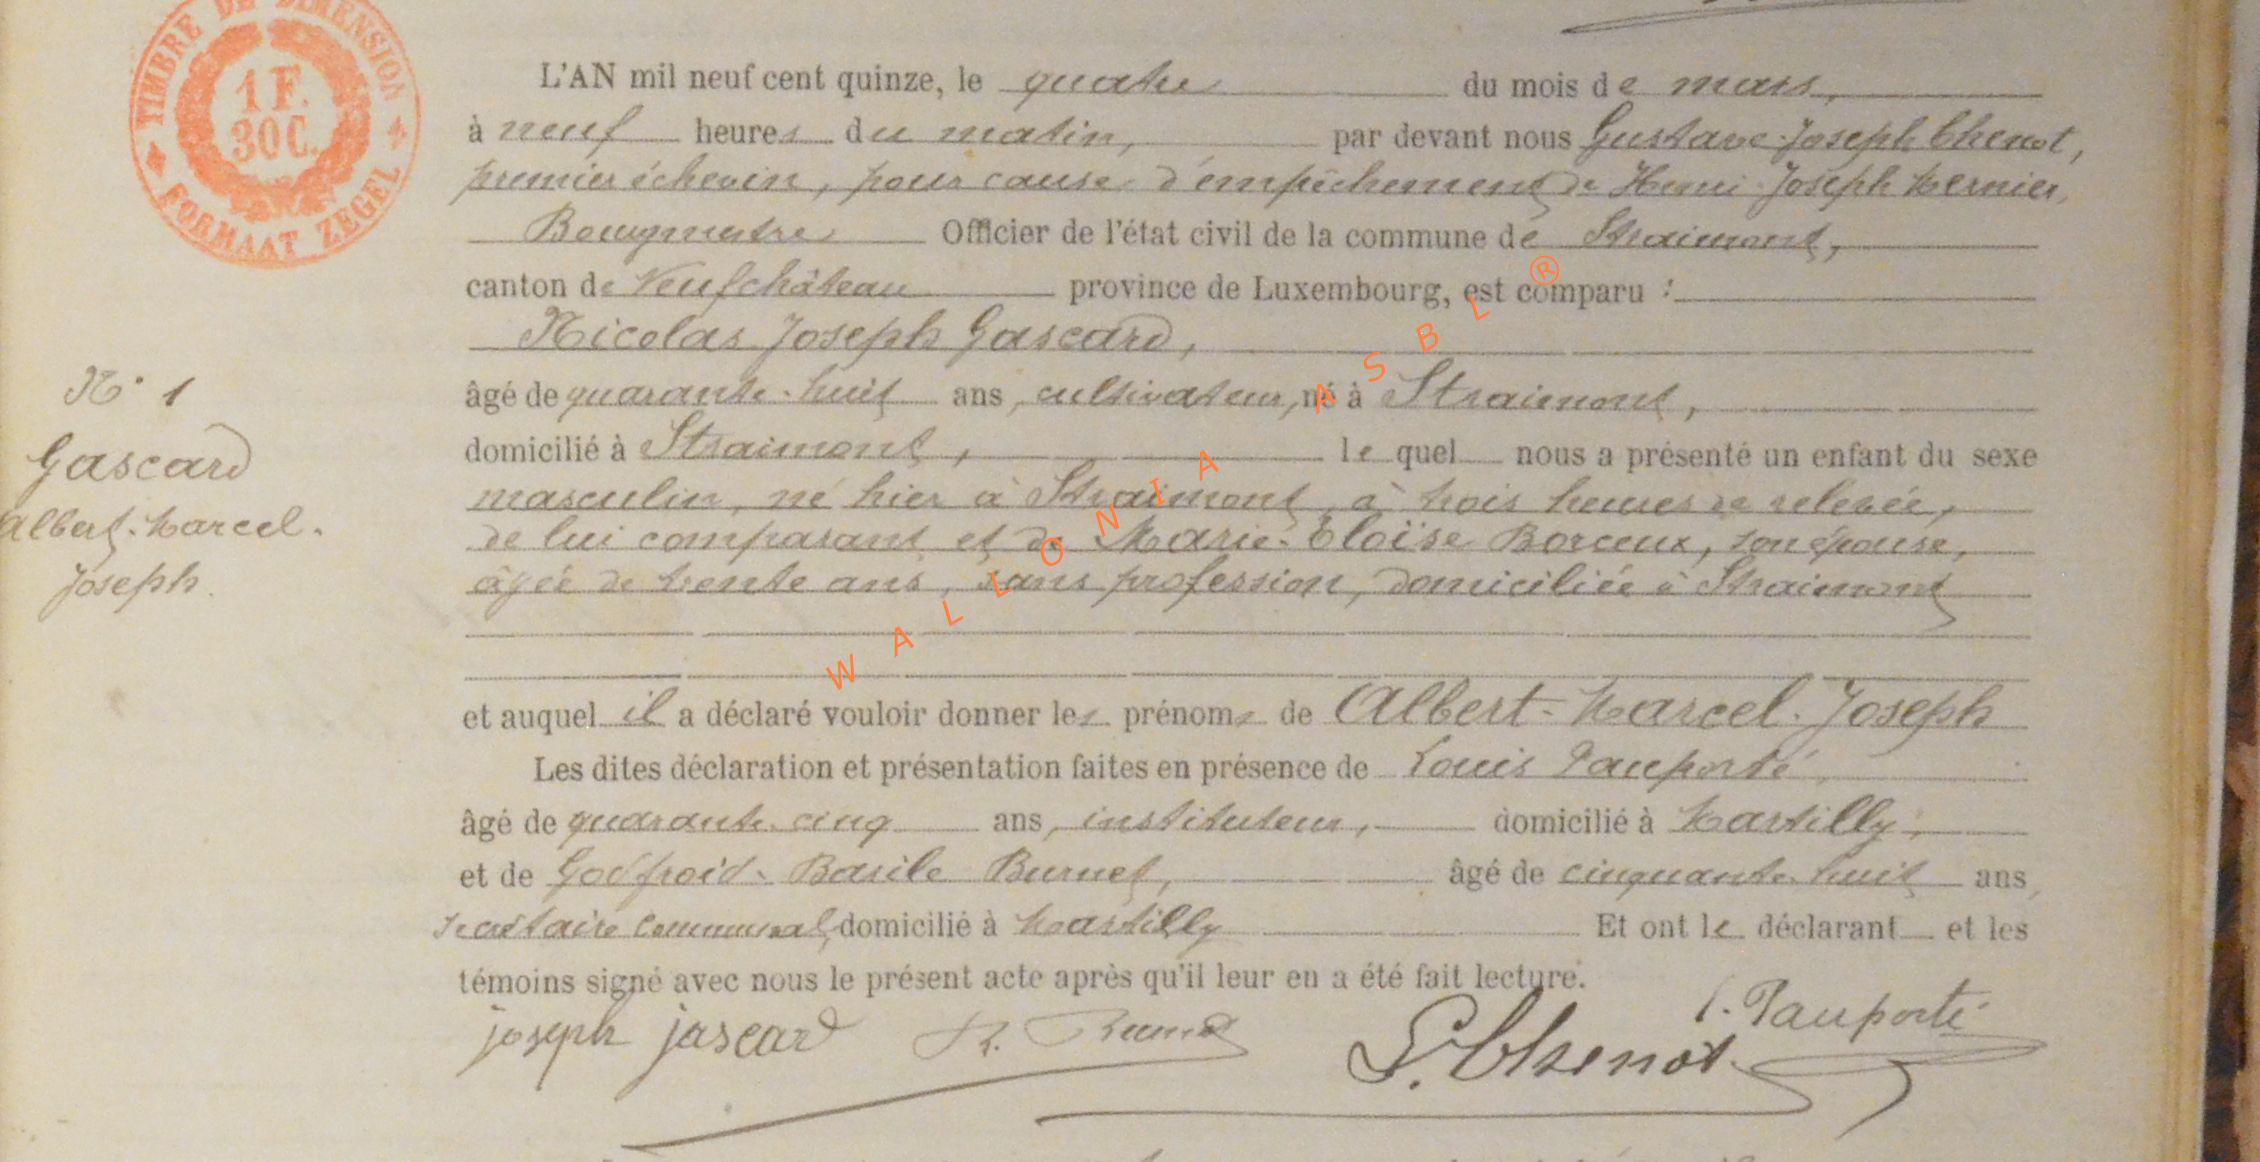 TIMBRE DE DIMENSION
1 F.
30 C.
FORMAAT ZEGEL
L'AN mil neuf cent quinze, le quatre du mois de mars,
à neuf heures du matin, par devant nous Gustave-Joseph Chenot,
premier échevin, pour cause d'empêchement de Henri-Joseph Mernier,
Bourgmestre Officier de l'état civil de la commune de Straimont,
canton de Neufchâteau province de Luxembourg, est comparu :
Nicolas Joseph Gascard,
âgé de quarante-huit ans, cultivateur, né à Straimont,
domicilié à Straimont, le quel nous a présenté un enfant du sexe
masculin, né hier à Straimont, à trois heures de relevée,
de lui comparant et de Marie-Eloïse Borceux, son épouse,
âgée de trente ans, sans profession, domiciliée à Straimont
et auquel il a déclaré vouloir donner les prénoms de Albert-Marcel-Joseph
Les dites déclaration et présentation faites en présence de Louis Pauporté,
âgé de quarante-cinq ans, instituteur, domicilié à Martilly,
et de Godfroid-Basile Burnet, âgé de cinquante-huit ans,
secrétaire communal, domicilié à Martilly Et ont le déclarant et les
témoins signé avec nous le présent acte après qu'il leur en a été fait lecture.
joseph jascard
L. Pauporté
G. Chenot
N° 1
Gascard
Albert-Marcel-
Joseph.
WALLONIA ASBL ®